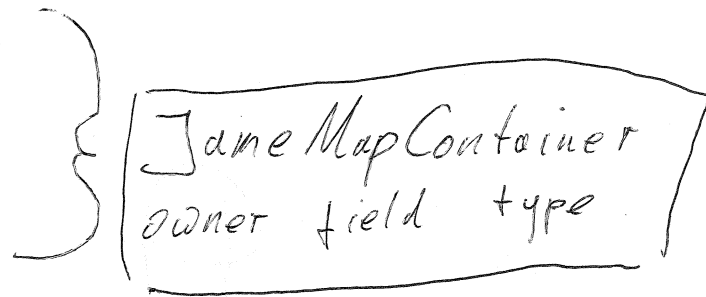 JameMapContainer
owner field type